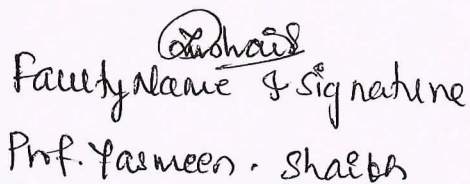 Faculty Name & Signature
Prof. Yasmeen. Shaikh